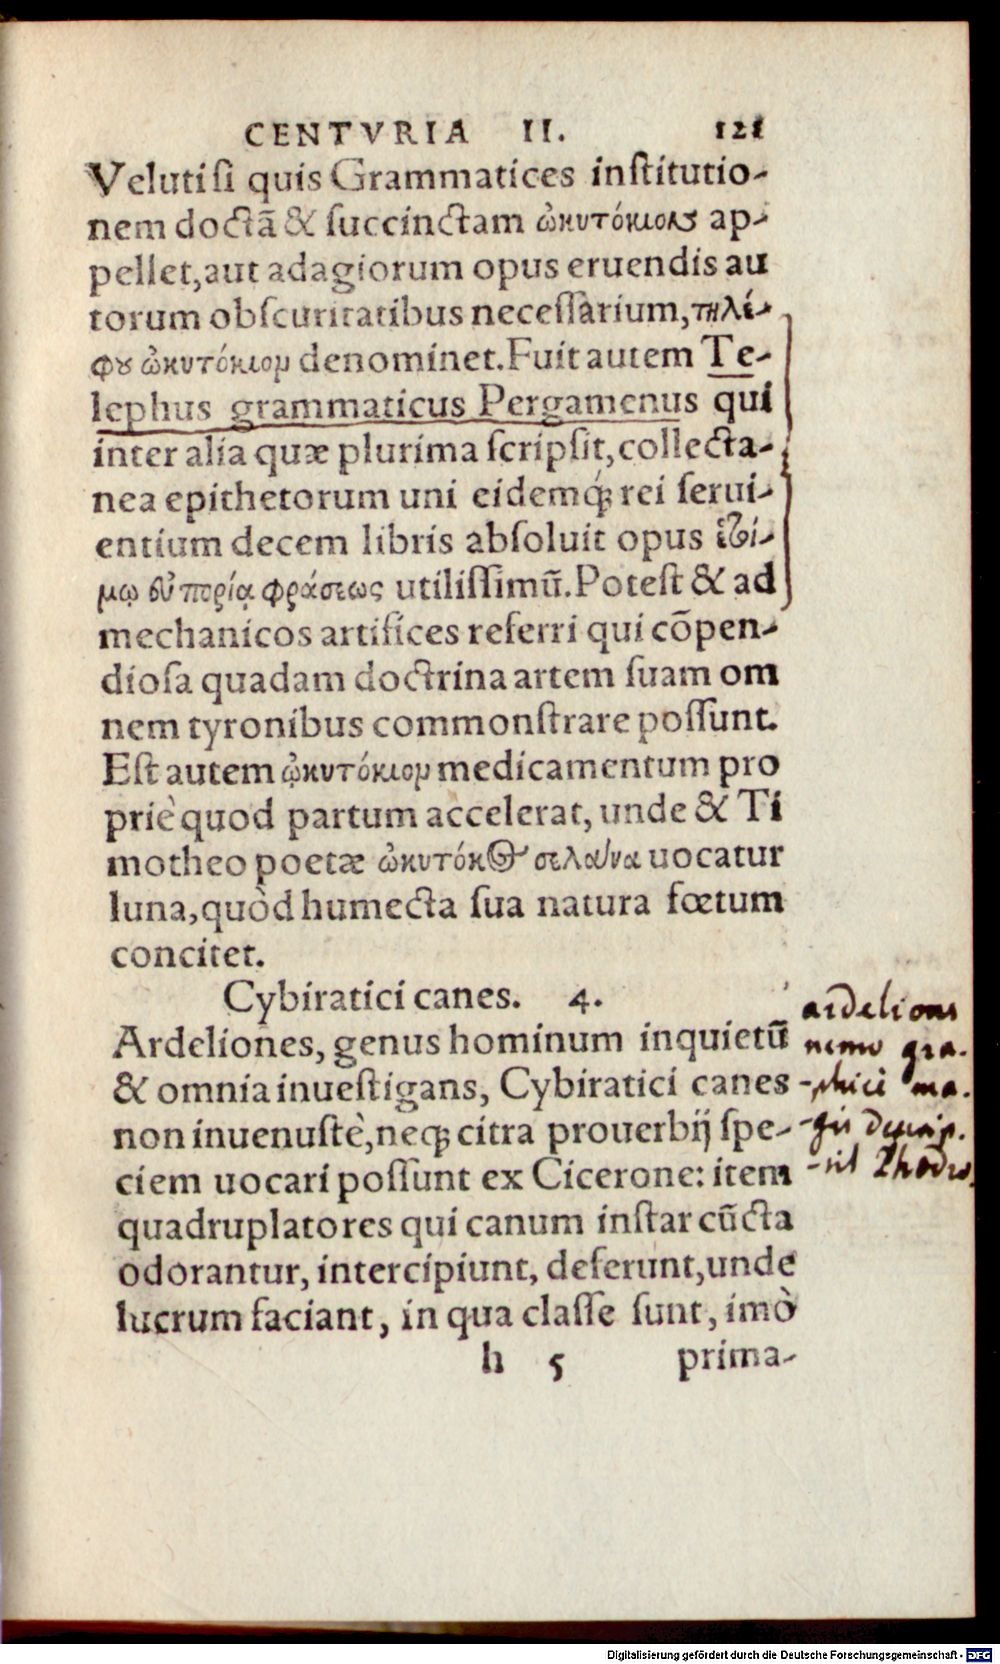 CENTVRIA II. 121
Veluti si quis Grammatices institutio-
nem doctã & succinctam ὠκυτόκιον ap-
pellet, aut adagiorum opus eruendis au
torum obscuritatibus necessarium, τηλέ-
φου ὠκυτόκιον denominet. Fuit autem Te-
lephus grammaticus Pergamenus qui
inter alia quæ plurima scripsit, collecta-
nea epithetorum uni eidemq́; rei serui-
entium decem libris absoluit opus ἑτοί-
μῳ εὐπορίᾳ φράσεως utilissimũ. Potest & ad
mechanicos artifices referri qui cõpen-
diosa quadam doctrina artem suam om
nem tyronibus commonstrare possunt.
Est autem ᾠκυτόκιον medicamentum pro
priè quod partum accelerat, unde & Ti
motheo poetæ ὠκυτόκος σελάνα uocatur
luna, quòd humecta sua natura fœtum
concitet.
Cybiratici canes. 4.
Ardeliones, genus hominum inquietũ
& omnia inuestigans, Cybiratici canes
non inuenustè, neq; citra prouerbij spe-
ciem uocari possunt ex Cicerone: item
quadruplatores qui canum instar cũcta
odorantur, intercipiunt, deferunt, unde
lucrum faciant, in qua classe sunt, imò
h 5 prima-
ardelions
nemo gra-
-phicè ma-
-gis descrip-
-sit Phædro.
Digitalisierung gefördert durch die Deutsche Forschungsgemeinschaft - DFG